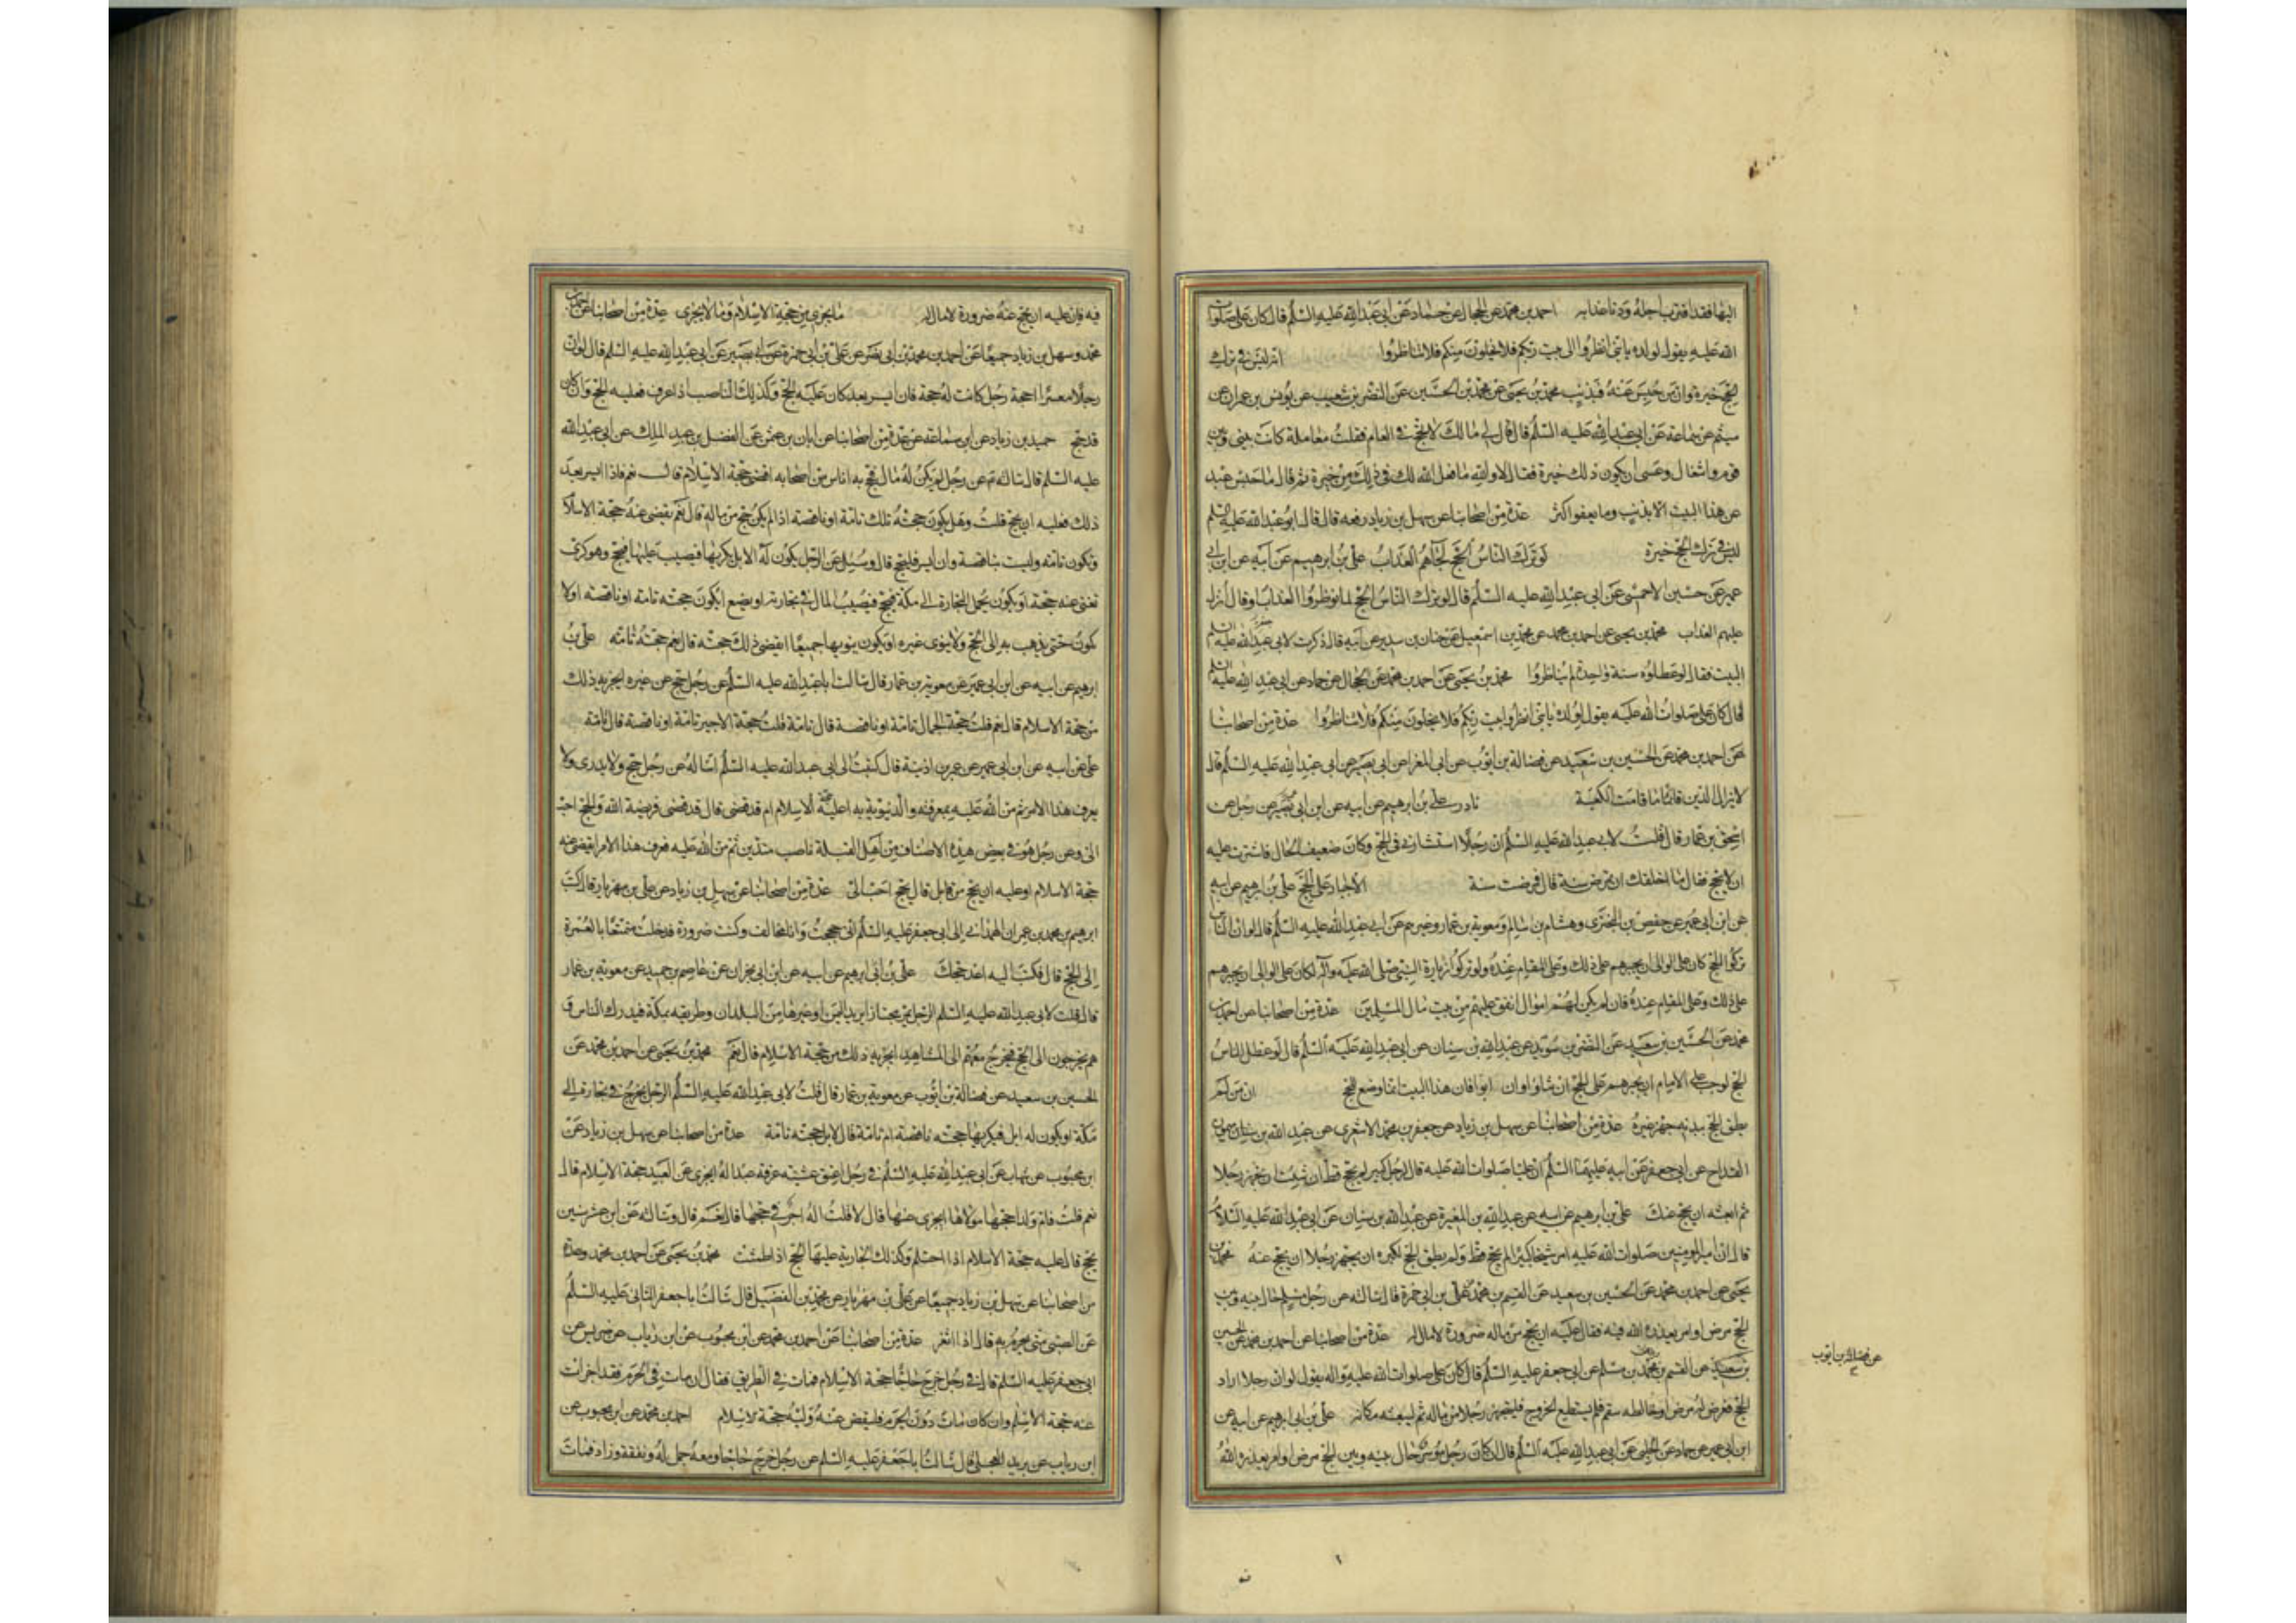 اليها فقد اقترب اجله ودنا عذابه احمد بن محمد عن الحجال عن حماد عن ابي عبد الله عليه السلم قال كان على صلوات
الله عليه يقول لولده يا بنى انظروا الى بيت ربكم فلا يخلون منكم فلا تناظروا انه ليس في ترك
الحج خيرة وان من حبس عنه فبذنب محمد بن يحيى عن محمد بن الحسين عن النضر بن شعيب عن يونس بن عمران بن
ميثم عن سماعة عن ابي عبد الله عليه السلم قال قال لي مالك لا تحج في العام فقلت معاملة كانت بيني وبين
قوم واشغال وعسى ان يكون ذلك خيرة فقال لا والله ما فعل الله لك في ذلك من خيرة ثم قال ما حبس عبد
عن هذا البيت الا بذنب وما يعفو اكثر عدة من اصحابنا عن سهل بن زياد رفعه قال قال ابو عبد الله عليه السلم
ليس في ترك الحج خيرة لو ترك الناس الحج لجاءهم العذاب علي بن ابرهيم عن ابيه عن ابن ابي
عمير عن حسين الاحمسي عن ابي عبد الله عليه السلم قال لو ترك الناس الحج لما نوظروا العذاب او قال انزل
عليهم العذاب محمد بن يحيى عن احمد بن محمد عن محمد بن اسمعيل عن حنان بن سدير عن ابيه قال ذكرت لابي جعفر عليه السلم
البيت فقال لو عطلوه سنة واحدة لم يناظروا محمد بن يحيى عن احمد بن محمد عن الحجال عن حماد عن ابي عبد الله عليه السلم
قال كان علي صلوات الله عليه يقول لولده يا بنى انظروا بيت ربكم فلا يخلون منكم فلا تناظروا عدة من اصحابنا
عن احمد بن محمد عن الحسين بن سعيد عن فضالة بن ايوب عن ابي المغرا عن ابي بصير عن ابي عبد الله عليه السلم قال
لا يزال الدين قائما ما قامت الكعبة نادر علي بن ابرهيم عن ابيه عن ابن ابي عمير عن رجل عن
اسحق بن عمار قال قلت لابي عبد الله عليه السلم ان رجلا استشارني في الحج وكان ضعيف الحال فاشرت عليه
ان لا يحج فقال ما اخلقك ان تمرض سنة قال فمرضت سنة الاجبار على الحج علي بن ابرهيم عن ابيه
عن ابن ابي عمير عن حفص بن البختري وهشام بن سالم ومعوية بن عمار وغيرهم عن ابي عبد الله عليه السلم قال لو ان الناس
تركوا الحج كان على الوالي ان يجبرهم على ذلك وعلى المقام عنده ولو تركوا زيارة النبي صلى الله عليه وآله لكان على الوالي ان يجبرهم
على ذلك وعلى المقام عنده فان لم يكن لهم اموال انفق عليهم من بيت مال المسلمين عدة من اصحابنا عن احمد بن
محمد عن الحسين بن سعيد عن النضر بن سويد عن عبد الله بن سنان عن ابي عبد الله عليه السلم قال لو عطل الناس
الحج لوجب على الامام ان يجبرهم على الحج ان شاؤا وان ابوا فان هذا البيت انما وضع للحج ان من لم
يطق الحج ببدنه جهز غيره عدة من اصحابنا عن سهل بن زياد عن جعفر بن محمد الاشعري عن عبد الله بن ميمون
القداح عن ابي جعفر عن ابيه عليهما السلم ان عليا صلوات الله عليه قال لرجل كبير لم يحج قط ان شئت ان تجهز رجلا
ثم ابعثه ان يحج عنك علي بن ابرهيم عن ابيه عن عبد الله بن المغيرة عن عبد الله بن سنان عن ابي عبد الله عليه السلام
قال ان امير المومنين صلوات الله عليه امر شيخا كبيرا لم يحج قط ولم يطق الحج لكبره ان يجهز رجلا ان يحج عنه محمد بن
يحيى عن احمد بن محمد عن الحسين بن سعيد عن القسم بن محمد عن علي بن ابي حمزة قال سالته عن رجل مسلم حال بينه وبين
الحج مرض او امر يعذره الله فيه فقال عليه ان يحج من ماله صرورة لا مال له عدة من اصحابنا عن احمد بن محمد عن الحسين
بن سعيد عن القسم بن محمد بن مسلم عن ابي جعفر عليه السلم قال كان علي صلوات الله عليه واله يقول لو ان رجلا اراد
الحج فعرض له مرض او خالطه سقم فلم يستطع الخروج فليجهز رجلا من ماله ثم ليبعثه مكانه علي بن ابي ابرهيم عن ابيه عن
ابن ابي عمير عن حماد عن الحلبي عن ابي عبد الله عليه السلم قال ان كان رجل موسر حال بينه وبين الحج مرض او امر يعذره الله
عن فضالة بن ايوب
فيه فان عليه ان يحج عنه صرورة لا مال له ما يجزي من حجة الاسلام وما لا يجزى عدة من اصحابنا عن احمد بن
محمد وسهل بن زياد جميعا عن احمد بن محمد بن ابي نصر عن علي بن ابي حمزة عن ابي بصير عن ابي عبد الله عليه السلم قال لو ان
رجلا معسرا احجه رجل كانت له حجة فان ايسر بعد كان عليه الحج وكذلك الناصب اذا عرف فعليه الحج وان كان
قد حج حميد بن زياد عن ابن سماعة عن عدة من اصحابنا عن ابان بن عثمن عن الفضل بن عبد الملك عن ابي عبد الله
عليه السلم قال سالته عن رجل لم يكن له مال فحج به اناس من اصحابه اقضى حجة الاسلام قال نعم فاذا ايسر بعد
ذلك فعليه ان يحج قلت وهل يكون حجته تلك تامة او ناقصة اذا لم يكن حج من ماله قال نعم يقضى عنه حجة الاسلام
وتكون تامة وليست بناقصة وان ايسر فليحج قال وسئل عن الرجل يكون له الابل يكريها فيصيب عليها فيحج وهو كرى
تغنى عنه حجة او يكون يحمل التجارة الى مكة فيحج فيصيب المال في تجارته او يضع ايكون حجته تامة او ناقصة او لا
تكون حتى يذهب به الى الحج ولا ينوى غيره او يكون ينويهما جميعا ايقضى ذلك حجته قال نعم حجته تامة علي بن
ابرهيم عن ابيه عن ابن ابي عمير عن معوية بن عمار قال سالت ابا عبد الله عليه السلم عن رجل حج عن غيره ايجزيه ذلك
من حجة الاسلام قال نعم قلت حجة الجمال تامة او ناقصة قال تامة قلت حجة الاجير تامة او ناقصة قال تامة
علي عن ابيه عن ابن ابي عمير عن عمر بن اذينة قال كتبت الى ابي عبد الله عليه السلم اساله عن رجل حج ولا يدرى ولا
يعرف هذا الامر ثم من الله عليه بمعرفته والدينونة به اعليه حجة الاسلام ام قد قضى قال قد قضى فريضة الله والحج احب
الى وعن رجل هو في بعض هذه الاصناف من اهل القبلة ناصب متدين ثم من الله عليه فعرف هذا الامر ايقضى عنه
حجة الاسلام او عليه ان يحج من قابل قال يحج احب الى عدة من اصحابنا عن سهل بن زياد عن علي بن مهزيار قال كتب
ابرهيم بن محمد بن عمران الهمذاني الى ابي جعفر عليه السلم اني حججت وانا مخالف وكنت صرورة فدخلت متمتعا بالعمرة
الى الحج قال فكتب اليه اعد حجك علي بن ابي ابرهيم عن ابيه عن ابن ابي نجران عن عاصم بن حميد عن معوية بن عمار
قال قلت لابي عبد الله عليه السلم الرجل يمر مجتازا يريد اليمن او غيرها من البلدان وطريقه بمكة فيدرك الناس و
هم يخرجون الى الحج فيخرج معهم الى المشاهد ايجزيه ذلك من حجة الاسلام قال نعم محمد بن يحيى عن احمد بن محمد عن
الحسين بن سعيد عن فضالة بن ايوب عن معوية بن عمار قال قلت لابي عبد الله عليه السلم الرجل يخرج في تجارة الى
مكة او يكون له ابل فيكريها حجته ناقصة ام تامة قال لا بل حجته تامة عدة من اصحابنا عن سهل بن زياد عن
ابن محبوب عن شهاب عن ابي عبد الله عليه السلم في رجل اعتق عشية عرفة عبدا له ايجزى عن العبد حجة الاسلام قال
نعم قلت فام ولد احجها مولاها ايجزى عنها قال لا قلت اله اجر في حجها قال نعم قال وسالته عن ابن عشر سنين
يحج قال عليه حجة الاسلام اذا احتلم وكذلك الجارية عليها الحج اذا طمثت محمد بن يحيى عن احمد بن محمد وعدة
من اصحابنا عن سهل بن زياد جميعا عن علي بن مهزيار عن محمد بن الفضيل قال سالت ابا جعفر الثاني عليه السلم
عن الصبي متى يحرم به قال اذا اثغر عدة من اصحابنا عن احمد بن محمد عن ابن محبوب عن ابن رياب عن ضريس عن
ابي جعفر عليه السلم قال في رجل خرج حاجا حجة الاسلام فمات في الطريق فقال ان مات في الحرم فقد اجزات
عنه حجة الاسلم وان كان مات دون الحرم فليقض عنه وليه حجة الاسلام احمد بن محمد عن ابن محبوب عن
ابن رياب عن بريد العجلي قال سالت ابا جعفر عليه السلم عن رجل خرج حاجا ومعه جمل له ونفقة وزاد فمات